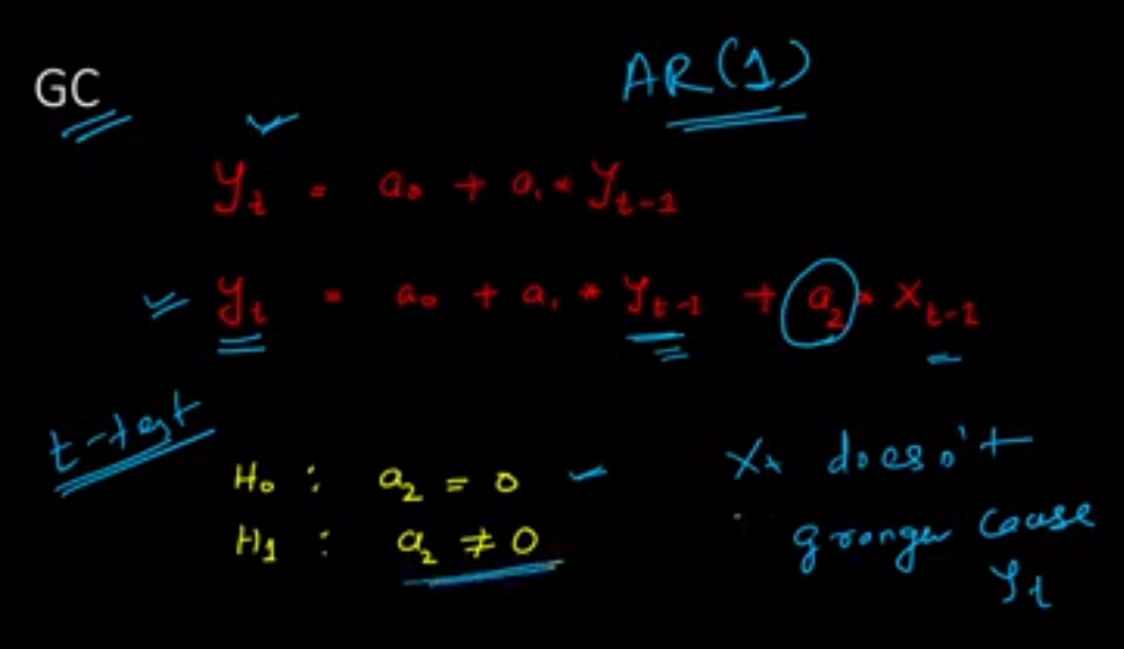 GC
AR(1)
y_t = a_0 + a_1 * y_{t-1}
y_t = a_0 + a_1 * y_{t-1} + a_2 * x_{t-1}
t-test
H_0 : a_2 = 0
H_1 : a_2 ≠ 0
X_t does't
granger cause
y_t